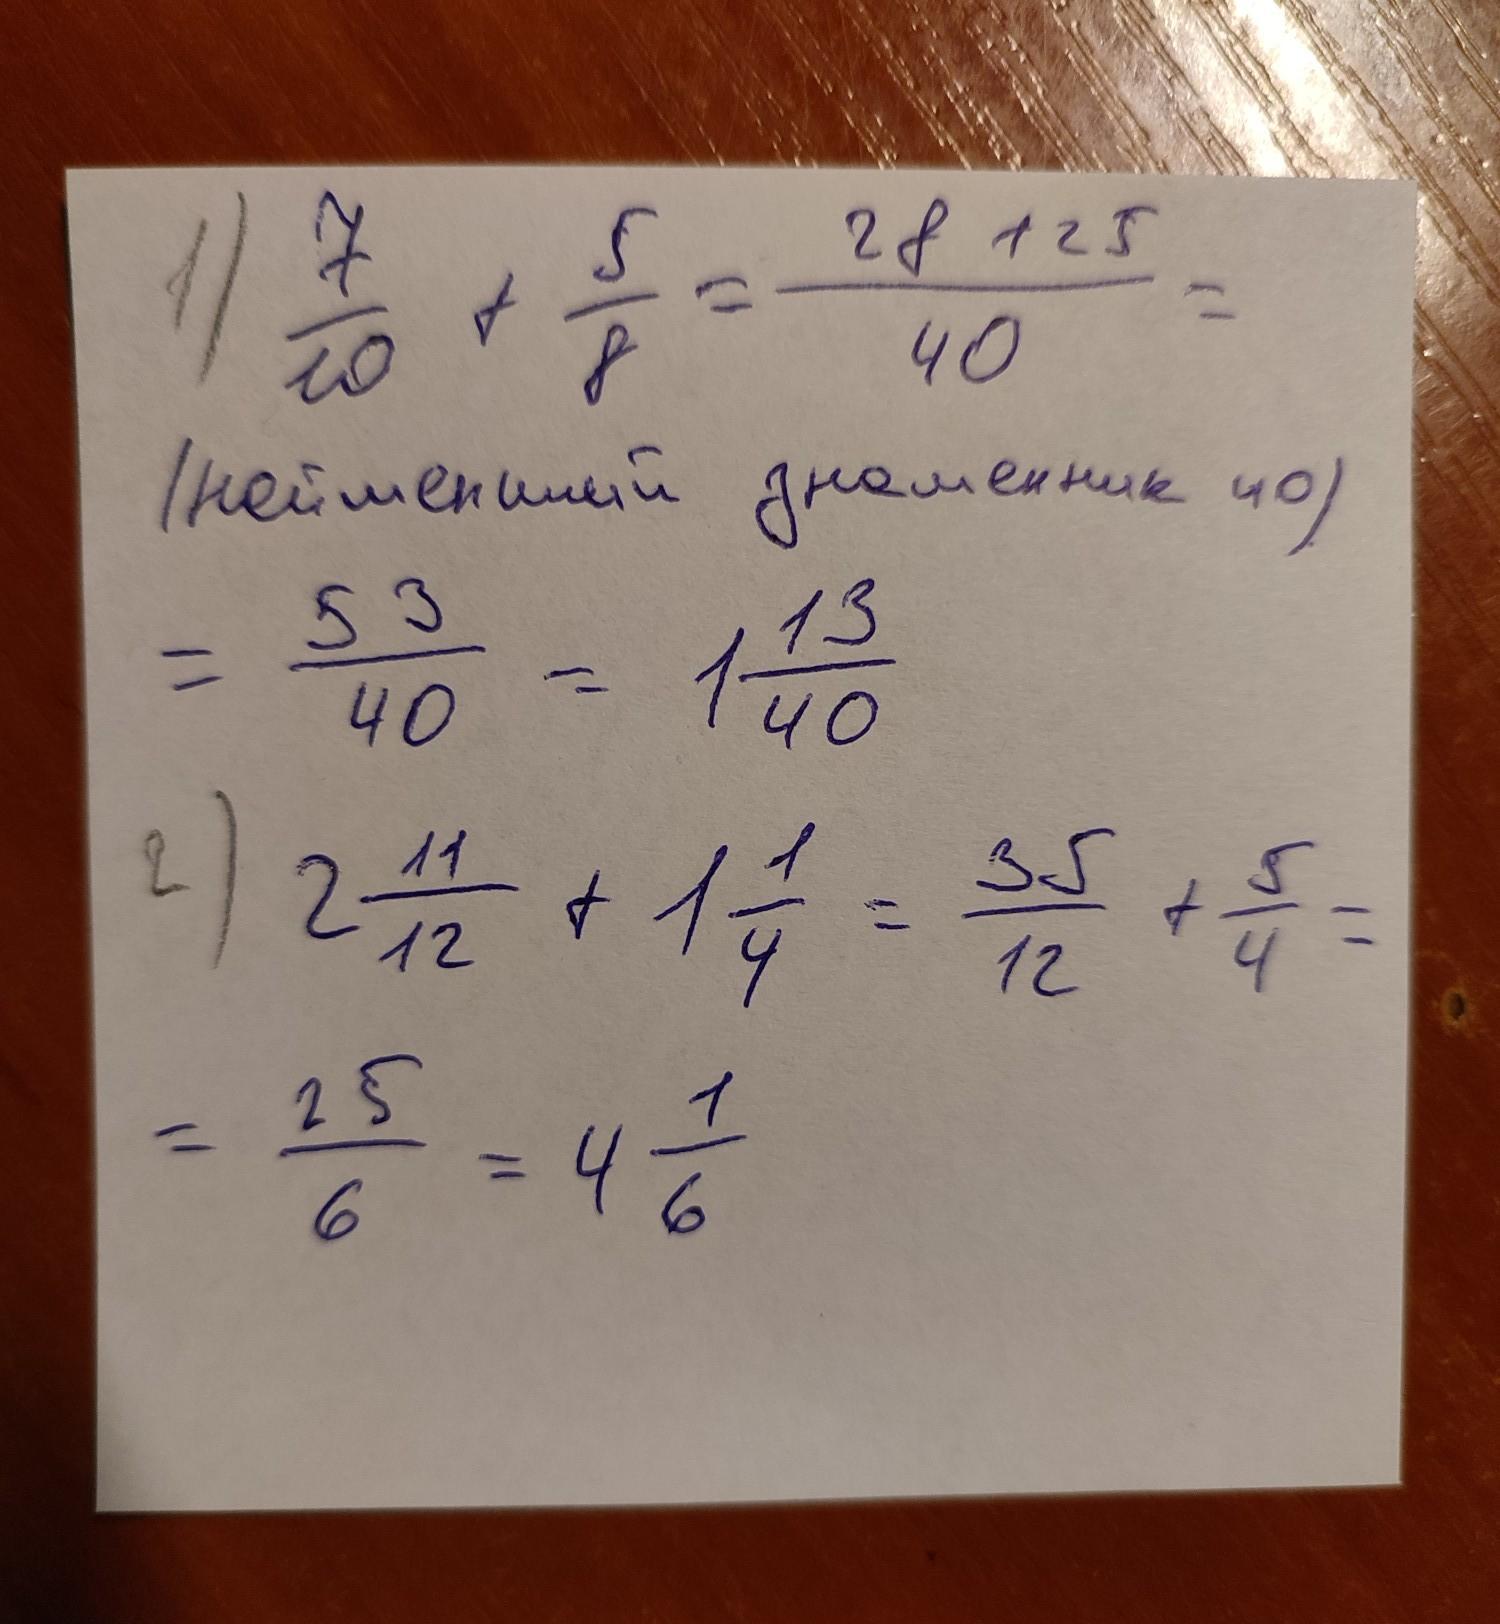 1) 7/10 + 5/8 = 28+25/40 =
(найменший знаменник 40)
= 53/40 = 1 13/40
2) 2 11/12 + 1 1/4 = 35/12 + 5/4 =
= 25/6 = 4 1/6